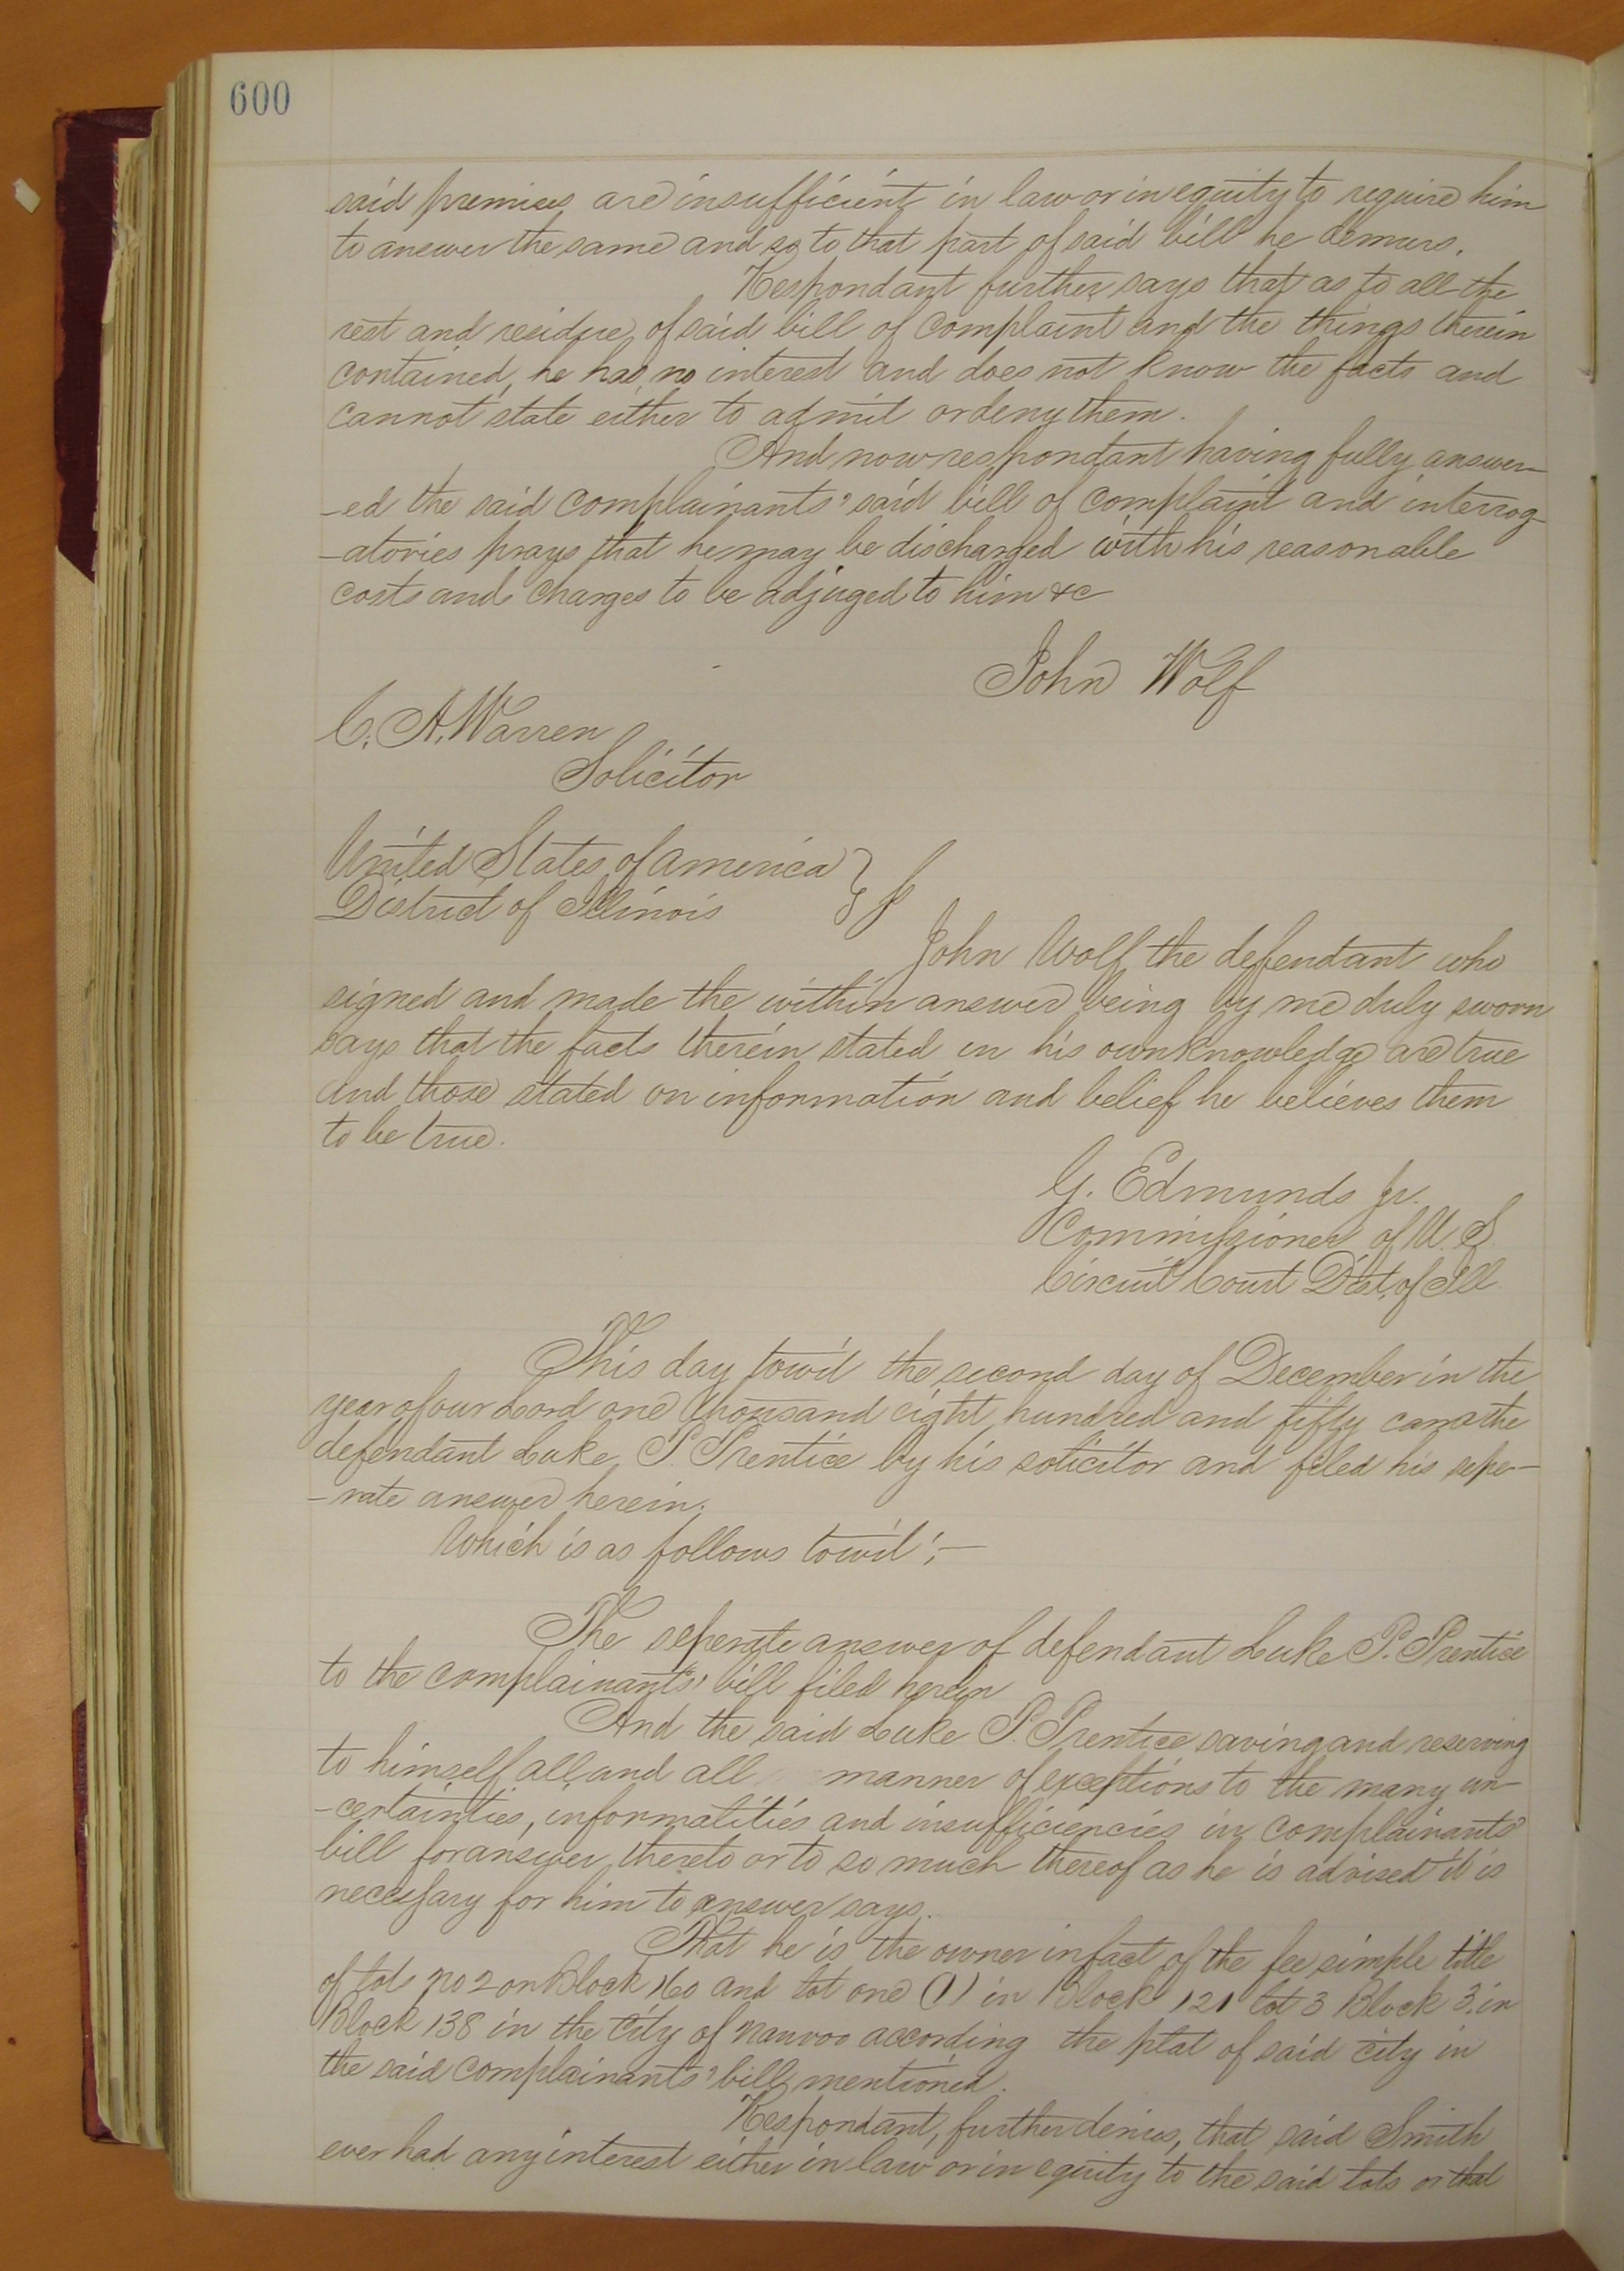 600
said premises are insufficient in law or in equity to require him
to answer the same and so to that part of said bill he demurs.
Respondant further says that as to all the
rest and residue, of said bill of complaint and the things therein
contained, he has no interest and does not know the facts and
cannot state either to admit or deny them.
And now respondant having fully answer-
-ed the said complainants' said bill of complaint and interrog-
-atories prays that he may be discharged with his reasonable
costs and charges to be adjuged to him &c
John Wolf
C. A. Warren
Solicitor
United States of America }
District of Illinois } ss
John Wolf the defendant who
signed and made the within answer being by me duly sworn
says that the facts therein stated in his own knowledge are true
and those stated on information and belief he believes them
to be true.
G. Edmunds Jr.
Commissioner of U. S.
Circuit Court Dist. of Ill
This day towit the second day of December in the
year of our Lord one thousand eight hundred and fifty came the
defendant Luke P. Prentice by his solicitor and filed his sepe-
-rate answer herein.
Which is as follows towit:-
The seperate answer of defendant Luke P. Prentice
to the complainants' bill filed herein
And the said Luke P. Prentice saving and reserving
to himself all and all manner of exceptions to the many un-
-certainties, informalities and insufficiencies in complainants'
bill for answer thereto or to so much thereof as he is advised it is
necessary for him to answer says.
That he is the owner in fact of the fee simple title
of lots no 2 on Block 160 and lot one (1) in Block 121 lot 3 Block 3. in
Block 138 in the City of Nauvoo according the plat of said city in
the said complainants' bill mentioned.
Respondant, further denies, that said Smith
ever had any interest either in law or in equity to the said lots or that